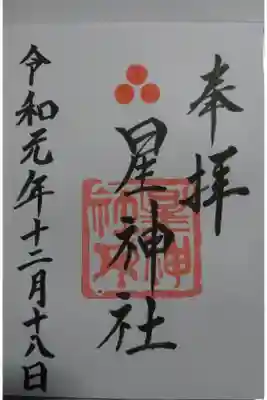 奉拝
星神社
令和元年十二月十八日